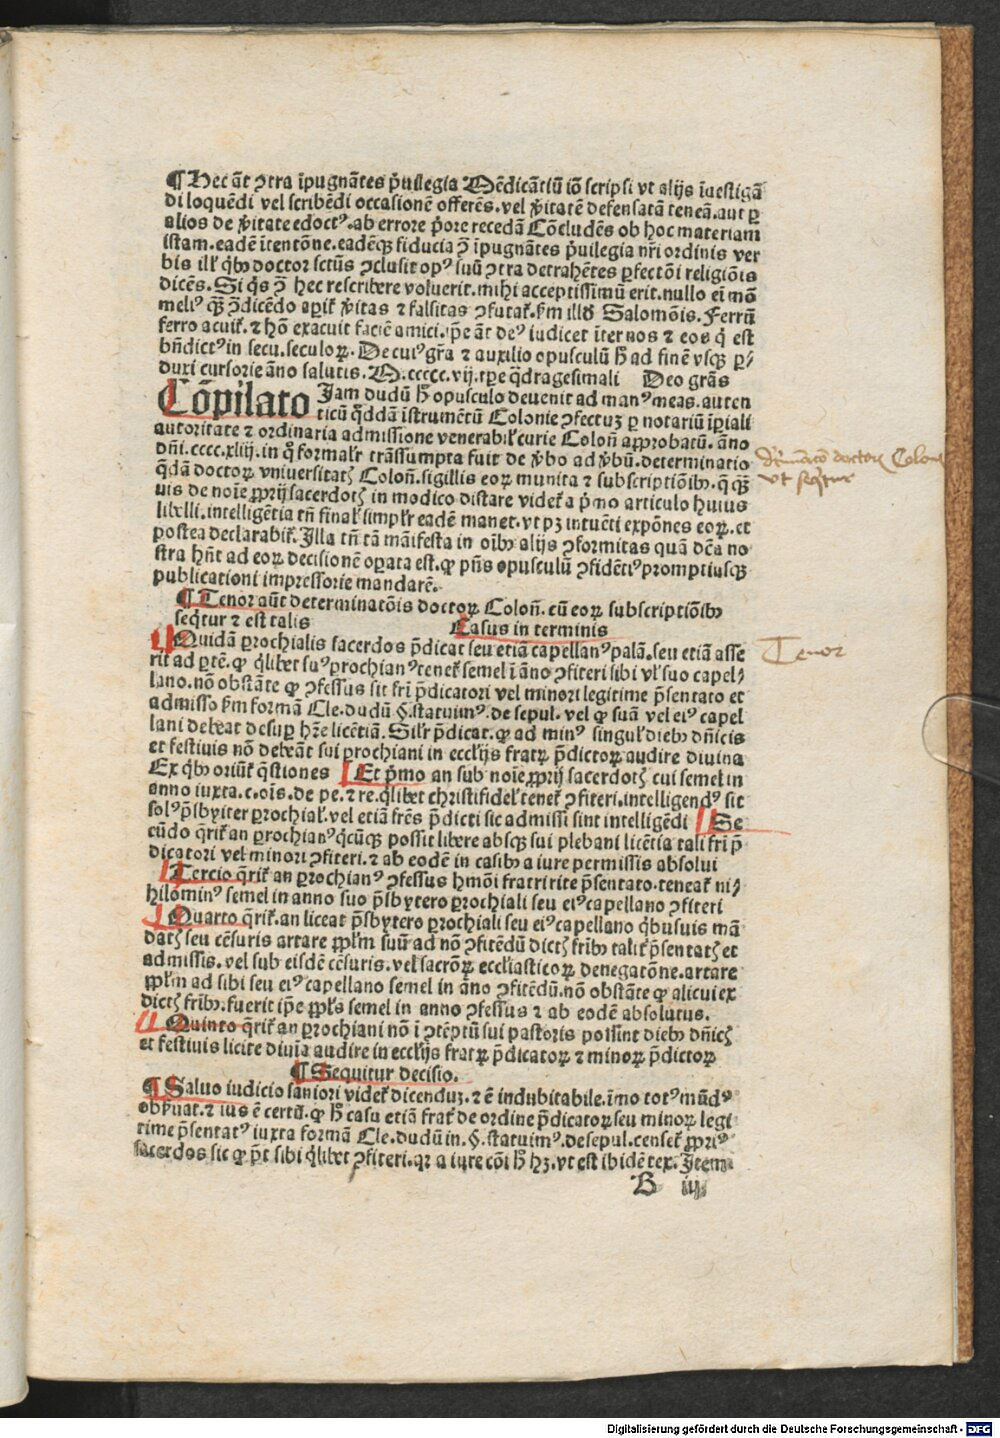 ¶ Hec āt ꝯtra īpugnātes p̄uilegia Mēdicātiū iō scripsi vt alijs īuestigā
di loquēdi vel scribēdi occasionē offerēs. vel v̄itatē defensatā teneā. aut ꝑ
alios de v̄itate edoctꝰ. ab errore p̄ore recedā Cōcludēs ob hoc materiam
istam. eadē ītentōne. eadēqꝫ fiducia ꝯ̄ īpugnātes p̄uilegia nr̄i ordinis ver
bis illꝭ qͥbꝫ doctor sctūs ꝯclusit opꝰ suū ꝯtra detrahētes ꝑfectōi religiōis
dicēs. Si qͥs ꝯ̄ hec rescribere voluerit. mihi acceptissimū erit. nullo eī mō
meliꝰ qꝫ̄ ꝯ̄dicēdo aꝑit᷑ v̄itas ⁊ falsitas ꝯfutat᷑. ẜm illđ Salomōis. Ferrū
ferro acuit᷑. ⁊ hō exacuit faciē amici. ip̄e āt deꝰ iudicet īter nos ⁊ eos qͥ est
bn̄dictꝰ in secu. seculoꝝ. De cuiꝰ gr̄a ⁊ auxilio opusculū ħ ad finē vsqꝫ ꝑ⸗
duxi cursorie āno salutis. M.ccccc.vij. tꝑe q̄dragesimali Deo gr̄as
Cōpilato Jam dudū ħ opusculo deuenit ad manꝰ meas. auten
ticū qͦddā īstrumētū Colonie ꝯfectuꝫ ꝑ notariū īꝑiali
autoritate ⁊ ordinaria admissione venerabilꝭ curie Coloñ aꝓrobatū. āno
dn̄i. cccc.xliij. in qͦ formalꝭr trāssumpta fuit de v̄bo ad v̄bū. determinatio
qͦdā doctoꝝ vniuersitatꝭ Coloñ. sigillis eoꝝ munita ⁊ subscriptiōibꝫ. q̄ qꝫ̄
uis de noīe ꝓprij sacerdotꝭ in modico distare videt᷑ a p̄mo articulo huius
libelli. intelligētia tn̄ finalꝭ simplꝭr eadē manet. vt pꝫ intuēti expōnes eoꝝ. et
postea declarabit᷑. Illa tn̄ tā māifesta in oībꝫ alijs ꝯformitas quā dc̄a no
stra hn̄t ad eoꝝ decisionē oꝑata est. ꝙ pn̄s opusculū ꝯfidētiꝰ promptiusqꝫ
publicationi impressorie mandarē.
¶ Tenor aūt determinatōis doctoꝝ Coloñ. cū eoꝝ subscriptiōibꝫ
seqͥtur ⁊ est talis Casus in terminis
Quidā ꝑrochialis sacerdos p̄dicat seu etiā capellanꝰ palā. seu etiā asse
rit ad ꝑtē. ꝙ qͥlibet suꝰ ꝑrochianꝰ tenet᷑ semel ī āno ꝯfiteri sibi vl̓ suo capel⸗
lano. nō obstāte ꝙ ꝯfessus sit fr̄i p̄dicatori vel minori legitime p̄sentato et
admisso ẜm formā Cle. dudū §. statuimꝰ. de sepul. vel ꝙ suā vel eiꝰ capel
lani debeat desuꝑ hr̄e licētiā. Silꝭr p̄dicat. ꝙ ad minꝰ singulꝭ diebꝫ dn̄icis
et festiuis nō debeāt sui ꝑrochiani in eccl̓ijs fratꝝ p̄dictoꝝ audire diuina
Ex qͥbꝫ oriūt᷑ q̄stiones Et p̄mo an sub noīe ꝓprij sacerdotꝭ cui semel in
anno iuxta. c. oīs. de pe. ⁊ re. qͥlibet christifidelꝭ tenet᷑ ꝯfiteri. intelligendꝰ sit
solꝰ p̄sbyiter ꝑrochialꝭ. vel etiā fr̄es p̄dicti sic admissi sint intelligēdi Se
cūdo q̄rit᷑ an ꝑrochianꝰ qͥcūqꝫ possit libere absqꝫ sui plebani licētia tali fr̄i p̄
dicatori vel minori ꝯfiteri. ⁊ ab eodē in casibꝫ a iure permissis absolui
Tercio q̄rit᷑ an ꝑrochianꝰ ꝯfessus hmōi fratri rite p̄sentato. teneat᷑ ni⸗
hilominꝰ semel in anno suo p̄sbytero ꝑrochiali seu eiꝰ capellano ꝯfiteri
Quarto q̄rit᷑. an liceat p̄sbytero ꝑrochiali seu eiꝰ capellano qͥbusuis mā
datꝭ seu cēsuris artare ꝓpl̓m suū ad nō ꝯfitēdū dictꝭ fr̄ibꝫ talit᷑ p̄sentatꝭ et
admissis. vel sub eisdē cēsuris. vel sacrōꝝ eccl̓iasticoꝝ denegatōne. artare
ꝓpl̓m ad sibi seu eiꝰ capellano semel in āno ꝯfitēdū. nō obstāte ꝙ alicui ex
dictꝭ fr̄ibꝫ. fuerit ip̄e ꝓpl̓s semel in anno ꝯfessus ⁊ ab eodē absolutus.
Quinto q̄rit᷑ an ꝑrochiani nō ī ꝯtēptū sui pastoris possint diebꝫ dn̄icꝭ
et festiuis licite diuīa audire in eccl̓ijs fratꝝ p̄dicatoꝝ ⁊ minoꝝ p̄dictoꝝ
¶ Sequitur decisio.
¶ Saluo iudicio saniori videt᷑ dicenduꝫ. ⁊ ē indubitabile. īmo totꝰ mūdꝰ
obẜuat. ⁊ ius ē certū. ꝙ ħ casu etiā frat᷑ de ordine p̄dicatoꝝ seu minoꝝ legi
time p̄sentatꝰ iuxta formā Cle. dudū in. §. statuimꝰ. de sepul. censet᷑ ꝓpriꝰ
sacerdos sic ꝙ p̄t sibi qͥlibet ꝯfiteri. qꝛ a iure cōi ħ hꝫ. vt est ibidē tex. Item
B iij
Tenor
Digitalisierung gefördert durch die Deutsche Forschungsgemeinschaft - DFG